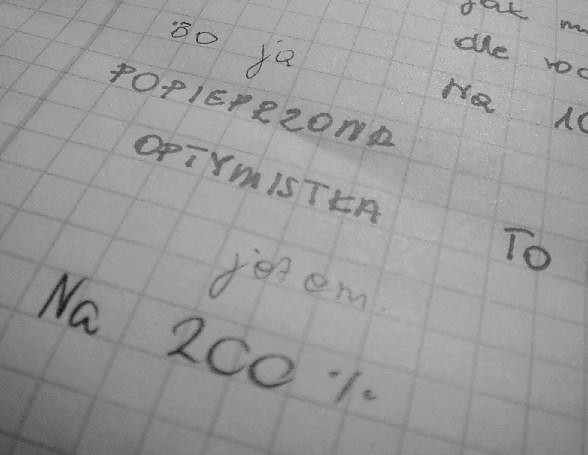 Bo ja
POPIEPRZONA
OPTYMISTKA
jestem.
Na 200 %
jak
dle
Na 10
To